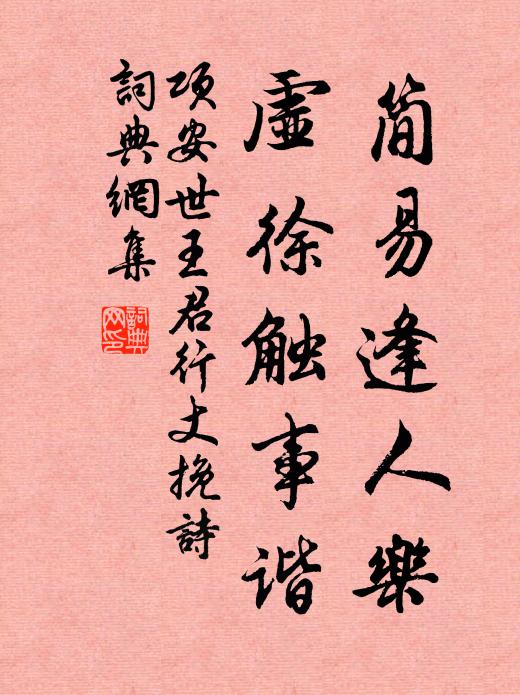 简易逢人樂
虛徐触事谐
项安世王君行丈挽詩
詞典網集
詞典网印